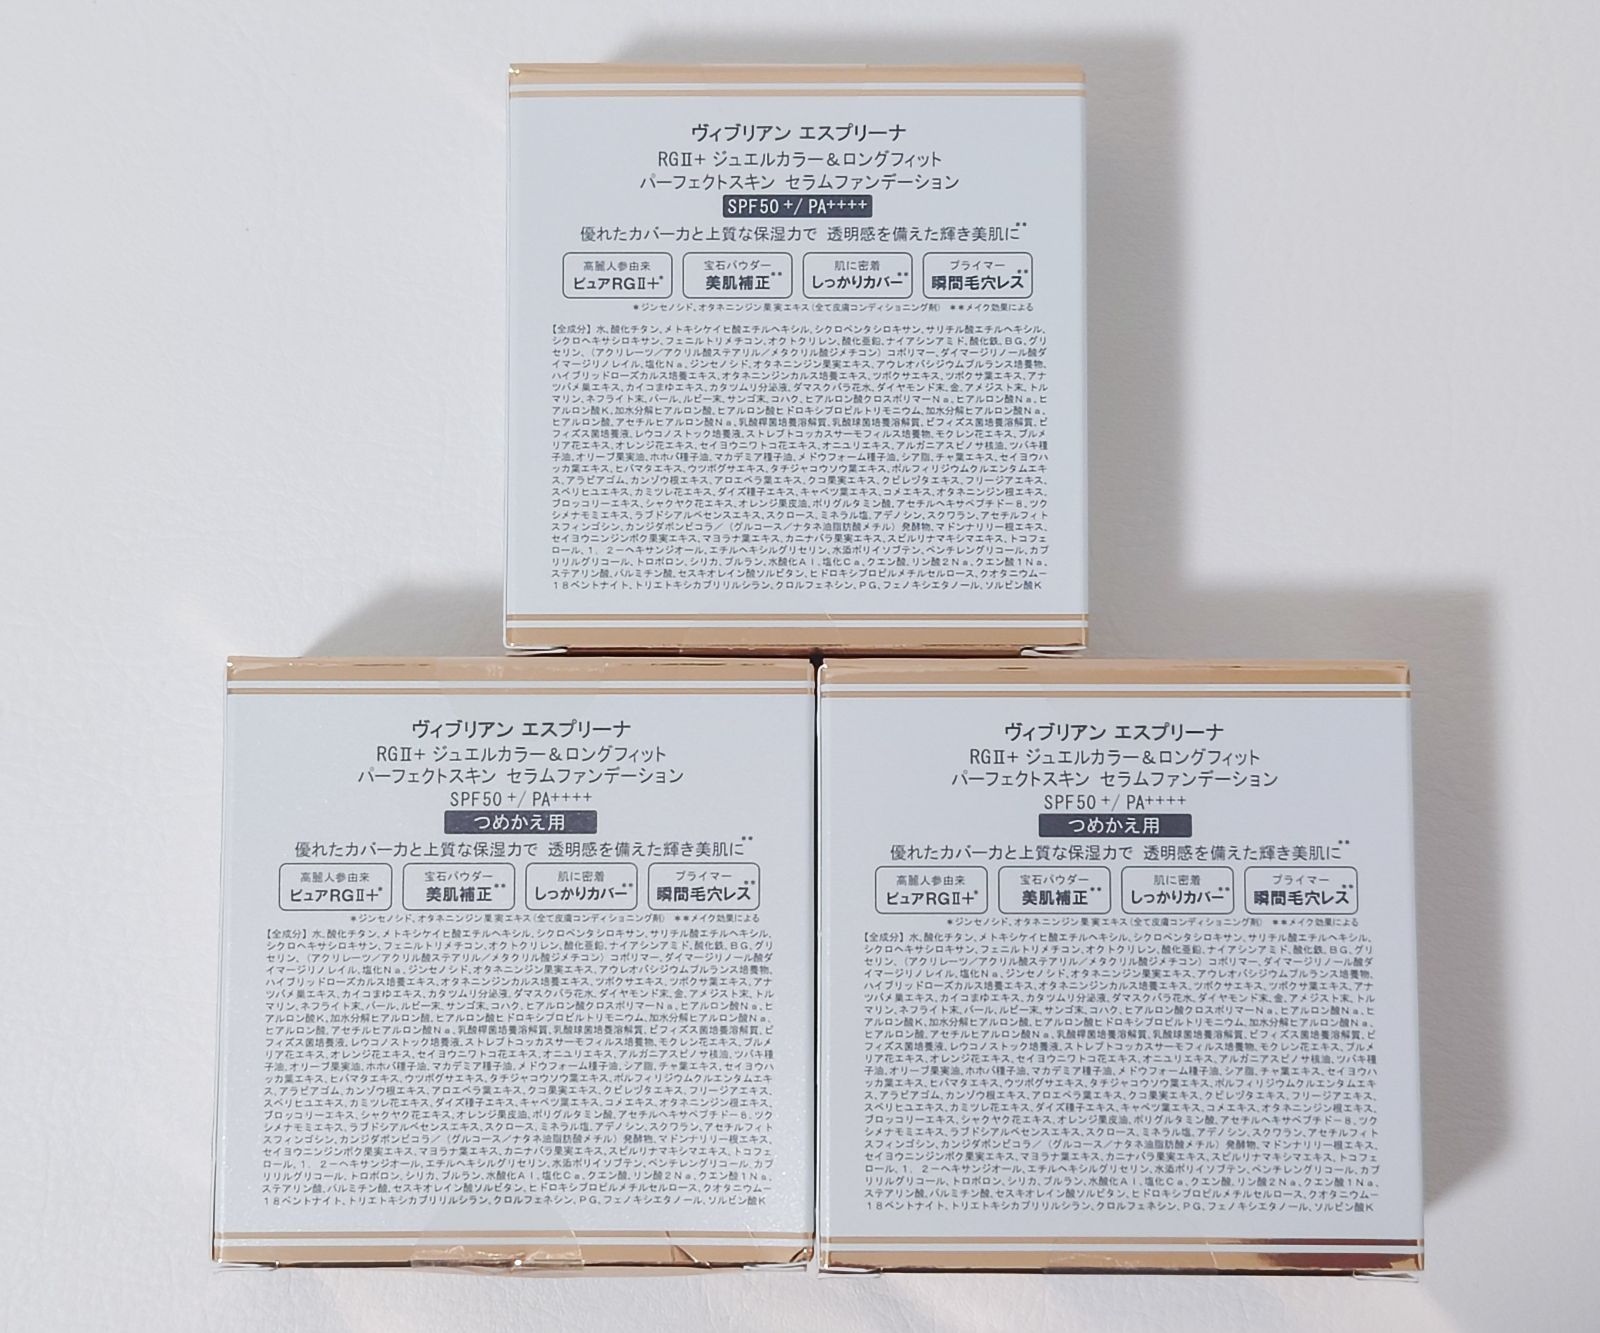 ヴィブリアン エスプリーナ
RGⅡ+ ジュエルカラー&ロングフィット
パーフェクトスキン セラムファンデーション
SPF50 +/ PA++++
優れたカバー力と上質な保湿力で 透明感を備えた輝き美肌に**
高麗人参由来
ピュアRGⅡ+*
宝石パウダー
美肌補正**
肌に密着
しっかりカバー**
プライマー
瞬間毛穴レス**
*ジンセノシド、オタネニンジン果実エキス(全て皮膚コンディショニング剤) **メイク効果による
【全成分】水、酸化チタン、メトキシケイヒ酸エチルヘキシル、シクロペンタシロキサン、サリチル酸エチルヘキシル、
シクロヘキサシロキサン、フェニルトリメチコン、オクトクリレン、酸化亜鉛、ナイアシンアミド、酸化鉄、BG、グリ
セリン、(アクリレーツ/アクリル酸ステアリル/メタクリル酸ジメチコン)コポリマー、ダイマージリノール酸ダ
イマージリノレイル、塩化Na、ジンセノシド、オタネニンジン果実エキス、アウレオバシジウムプルランス培養物、
ハイブリッドローズカルス培養エキス、オタネニンジンカルス培養エキス、ツボクサエキス、ツボクサ葉エキス、アナ
ツバメ巣エキス、カイコまゆエキス、カタツムリ分泌液、ダマスクバラ花水、ダイヤモンド末、金、アメジスト末、トル
マリン、ネフライト末、パール、ルビー末、サンゴ末、コハク、ヒアルロン酸クロスポリマーNa、ヒアルロン酸Na、ヒ
アルロン酸K、加水分解ヒアルロン酸、ヒアルロン酸ヒドロキシプロピルトリモニウム、加水分解ヒアルロン酸Na、
ヒアルロン酸、アセチルヒアルロン酸Na、乳酸桿菌培養溶解質、乳酸球菌培養溶解質、ビフィズス菌培養溶解質、ビ
フィズス菌培養液、レウコノストック培養液、ストレプトコッカスサーモフィルス培養物、モクレン花エキス、プルメ
リア花エキス、オレンジ花エキス、セイヨウニワトコ花エキス、オニユリエキス、アルガニアスピノサ核油、ツバキ種
子油、オリーブ果実油、ホホバ種子油、マカデミア種子油、メドウフォーム種子油、シア脂、チャ葉エキス、セイヨウハ
ッカ葉エキス、ヒバマタエキス、ウツボグサエキス、タチジャコウソウ葉エキス、ポルフィリジウムクルエンタムエキ
ス、アラビアゴム、カンゾウ根エキス、アロエベラ葉エキス、クコ果実エキス、クビレヅタエキス、フリージアエキス、
スベリヒユエキス、カミツレ花エキス、ダイズ種子エキス、キャベツ葉エキス、コメエキス、オタネニンジン根エキス、
ブロッコリーエキス、シャクヤク花エキス、オレンジ果皮油、ポリグルタミン酸、アセチルヘキサペプチド-8、ツク
シメナモミエキス、ラブドシアルベンセンスエキス、スクロース、ミネラル塩、アデノシン、スクワラン、アセチルフィト
スフィンゴシン、カンジダボンビコラ/(グルコース/ナタネ油脂肪酸メチル)発酵物、マドンナリリー根エキス、
セイヨウニンジンボク果実エキス、マヨラナ葉エキス、カニナバラ果実エキス、スピルリナマキシマエキス、トコフェ
ロール、1,2-ヘキサンジオール、エチルヘキシルグリセリン、水添ポリイソブテン、ペンチレングリコール、カプ
リリルグリコール、トロポロン、シリカ、プルラン、水酸化Al、塩化Ca、クエン酸、リン酸2Na、クエン酸1Na、
ステアリン酸、パルミチン酸、セスキオレイン酸ソルビタン、ヒドロキシプロピルメチルセルロース、クオタニウム-
18ベントナイト、トリエトキシカプリリルシラン、クロルフェネシン、PG、フェノキシエタノール、ソルビン酸K
ヴィブリアン エスプリーナ
RGⅡ+ ジュエルカラー&ロングフィット
パーフェクトスキン セラムファンデーション
SPF50 +/ PA++++
つめかえ用
優れたカバー力と上質な保湿力で 透明感を備えた輝き美肌に**
高麗人参由来
ピュアRGⅡ+*
宝石パウダー
美肌補正**
肌に密着
しっかりカバー**
プライマー
瞬間毛穴レス**
*ジンセノシド、オタネニンジン果実エキス(全て皮膚コンディショニング剤) **メイク効果による
【全成分】水、酸化チタン、メトキシケイヒ酸エチルヘキシル、シクロペンタシロキサン、サリチル酸エチルヘキシル、
シクロヘキサシロキサン、フェニルトリメチコン、オクトクリレン、酸化亜鉛、ナイアシンアミド、酸化鉄、BG、グリ
セリン、(アクリレーツ/アクリル酸ステアリル/メタクリル酸ジメチコン)コポリマー、ダイマージリノール酸ダ
イマージリノレイル、塩化Na、ジンセノシド、オタネニンジン果実エキス、アウレオバシジウムプルランス培養物、
ハイブリッドローズカルス培養エキス、オタネニンジンカルス培養エキス、ツボクサエキス、ツボクサ葉エキス、アナ
ツバメ巣エキス、カイコまゆエキス、カタツムリ分泌液、ダマスクバラ花水、ダイヤモンド末、金、アメジスト末、トル
マリン、ネフライト末、パール、ルビー末、サンゴ末、コハク、ヒアルロン酸クロスポリマーNa、ヒアルロン酸Na、ヒ
アルロン酸K、加水分解ヒアルロン酸、ヒアルロン酸ヒドロキシプロピルトリモニウム、加水分解ヒアルロン酸Na、
ヒアルロン酸、アセチルヒアルロン酸Na、乳酸桿菌培養溶解質、乳酸球菌培養溶解質、ビフィズス菌培養溶解質、ビ
フィズス菌培養液、レウコノストック培養液、ストレプトコッカスサーモフィルス培養物、モクレン花エキス、プルメ
リア花エキス、オレンジ花エキス、セイヨウニワトコ花エキス、オニユリエキス、アルガニアスピノサ核油、ツバキ種
子油、オリーブ果実油、ホホバ種子油、マカデミア種子油、メドウフォーム種子油、シア脂、チャ葉エキス、セイヨウハ
ッカ葉エキス、ヒバマタエキス、ウツボグサエキス、タチジャコウソウ葉エキス、ポルフィリジウムクルエンタムエキ
ス、アラビアゴム、カンゾウ根エキス、アロエベラ葉エキス、クコ果実エキス、クビレヅタエキス、フリージアエキス、
スベリヒユエキス、カミツレ花エキス、ダイズ種子エキス、キャベツ葉エキス、コメエキス、オタネニンジン根エキス、
ブロッコリーエキス、シャクヤク花エキス、オレンジ果皮油、ポリグルタミン酸、アセチルヘキサペプチド-8、ツク
シメナモミエキス、ラブドシアルベンセンスエキス、スクロース、ミネラル塩、アデノシン、スクワラン、アセチルフィト
スフィンゴシン、カンジダボンビコラ/(グルコース/ナタネ油脂肪酸メチル)発酵物、マドンナリリー根エキス、
セイヨウニンジンボク果実エキス、マヨラナ葉エキス、カニナバラ果実エキス、スピルリナマキシマエキス、トコフェ
ロール、1,2-ヘキサンジオール、エチルヘキシルグリセリン、水添ポリイソブテン、ペンチレングリコール、カプ
リリルグリコール、トロポロン、シリカ、プルラン、水酸化Al、塩化Ca、クエン酸、リン酸2Na、クエン酸1Na、
ステアリン酸、パルミチン酸、セスキオレイン酸ソルビタン、ヒドロキシプロピルメチルセルロース、クオタニウム-
18ベントナイト、トリエトキシカプリリルシラン、クロルフェネシン、PG、フェノキシエタノール、ソルビン酸K
ヴィブリアン エスプリーナ
RGⅡ+ ジュエルカラー&ロングフィット
パーフェクトスキン セラムファンデーション
SPF50 +/ PA++++
つめかえ用
優れたカバー力と上質な保湿力で 透明感を備えた輝き美肌に**
高麗人参由来
ピュアRGⅡ+*
宝石パウダー
美肌補正**
肌に密着
しっかりカバー**
プライマー
瞬間毛穴レス**
*ジンセノシド、オタネニンジン果実エキス(全て皮膚コンディショニング剤) **メイク効果による
【全成分】水、酸化チタン、メトキシケイヒ酸エチルヘキシル、シクロペンタシロキサン、サリチル酸エチルヘキシル、
シクロヘキサシロキサン、フェニルトリメチコン、オクトクリレン、酸化亜鉛、ナイアシンアミド、酸化鉄、BG、グリ
セリン、(アクリレーツ/アクリル酸ステアリル/メタクリル酸ジメチコン)コポリマー、ダイマージリノール酸ダ
イマージリノレイル、塩化Na、ジンセノシド、オタネニンジン果実エキス、アウレオバシジウムプルランス培養物、
ハイブリッドローズカルス培養エキス、オタネニンジンカルス培養エキス、ツボクサエキス、ツボクサ葉エキス、アナ
ツバメ巣エキス、カイコまゆエキス、カタツムリ分泌液、ダマスクバラ花水、ダイヤモンド末、金、アメジスト末、トル
マリン、ネフライト末、パール、ルビー末、サンゴ末、コハク、ヒアルロン酸クロスポリマーNa、ヒアルロン酸Na、ヒ
アルロン酸K、加水分解ヒアルロン酸、ヒアルロン酸ヒドロキシプロピルトリモニウム、加水分解ヒアルロン酸Na、
ヒアルロン酸、アセチルヒアルロン酸Na、乳酸桿菌培養溶解質、乳酸球菌培養溶解質、ビフィズス菌培養溶解質、ビ
フィズス菌培養液、レウコノストック培養液、ストレプトコッカスサーモフィルス培養物、モクレン花エキス、プルメ
リア花エキス、オレンジ花エキス、セイヨウニワトコ花エキス、オニユリエキス、アルガニアスピノサ核油、ツバキ種
子油、オリーブ果実油、ホホバ種子油、マカデミア種子油、メドウフォーム種子油、シア脂、チャ葉エキス、セイヨウハ
ッカ葉エキス、ヒバマタエキス、ウツボグサエキス、タチジャコウソウ葉エキス、ポルフィリジウムクルエンタムエキ
ス、アラビアゴム、カンゾウ根エキス、アロエベラ葉エキス、クコ果実エキス、クビレヅタエキス、フリージアエキス、
スベリヒユエキス、カミツレ花エキス、ダイズ種子エキス、キャベツ葉エキス、コメエキス、オタネニンジン根エキス、
ブロッコリーエキス、シャクヤク花エキス、オレンジ果皮油、ポリグルタミン酸、アセチルヘキサペプチド-8、ツク
シメナモミエキス、ラブドシアルベンセンスエキス、スクロース、ミネラル塩、アデノシン、スクワラン、アセチルフィト
スフィンゴシン、カンジダボンビコラ/(グルコース/ナタネ油脂肪酸メチル)発酵物、マドンナリリー根エキス、
セイヨウニンジンボク果実エキス、マヨラナ葉エキス、カニナバラ果実エキス、スピルリナマキシマエキス、トコフェ
ロール、1,2-ヘキサンジオール、エチルヘキシルグリセリン、水添ポリイソブテン、ペンチレングリコール、カプ
リリルグリコール、トロポロン、シリカ、プルラン、水酸化Al、塩化Ca、クエン酸、リン酸2Na、クエン酸1Na、
ステアリン酸、パルミチン酸、セスキオレイン酸ソルビタン、ヒドロキシプロピルメチルセルロース、クオタニウム-
18ベントナイト、トリエトキシカプリリルシラン、クロルフェネシン、PG、フェノキシエタノール、ソルビン酸K